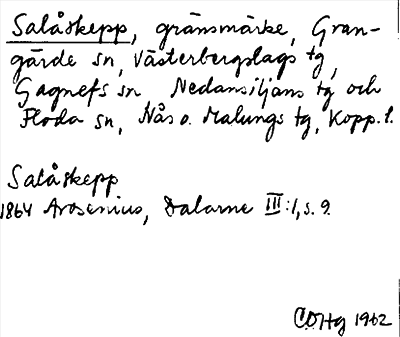 Salåskepp, gränsmärke, Gran-
gärde sn, Västerbergslags tg,
Gagnefs sn Nedansiljans tg och
Floda sn, Nås o. Malungs tg, Kopp. l.
Salåskepp
1864 Arosenius, Dalarne III:1, s. 9.
COHg 1962